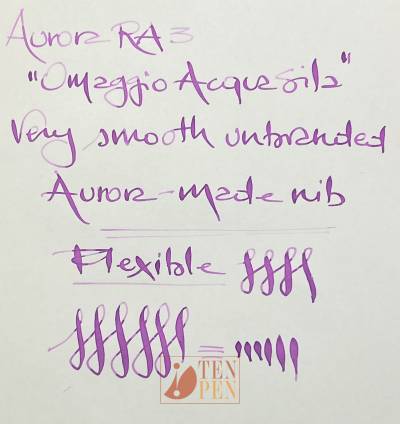 Aurora RA3
"Omaggio Acquasila"
Very smooth unbranded
Aurora-made nib
Flexible
TEN
PEN